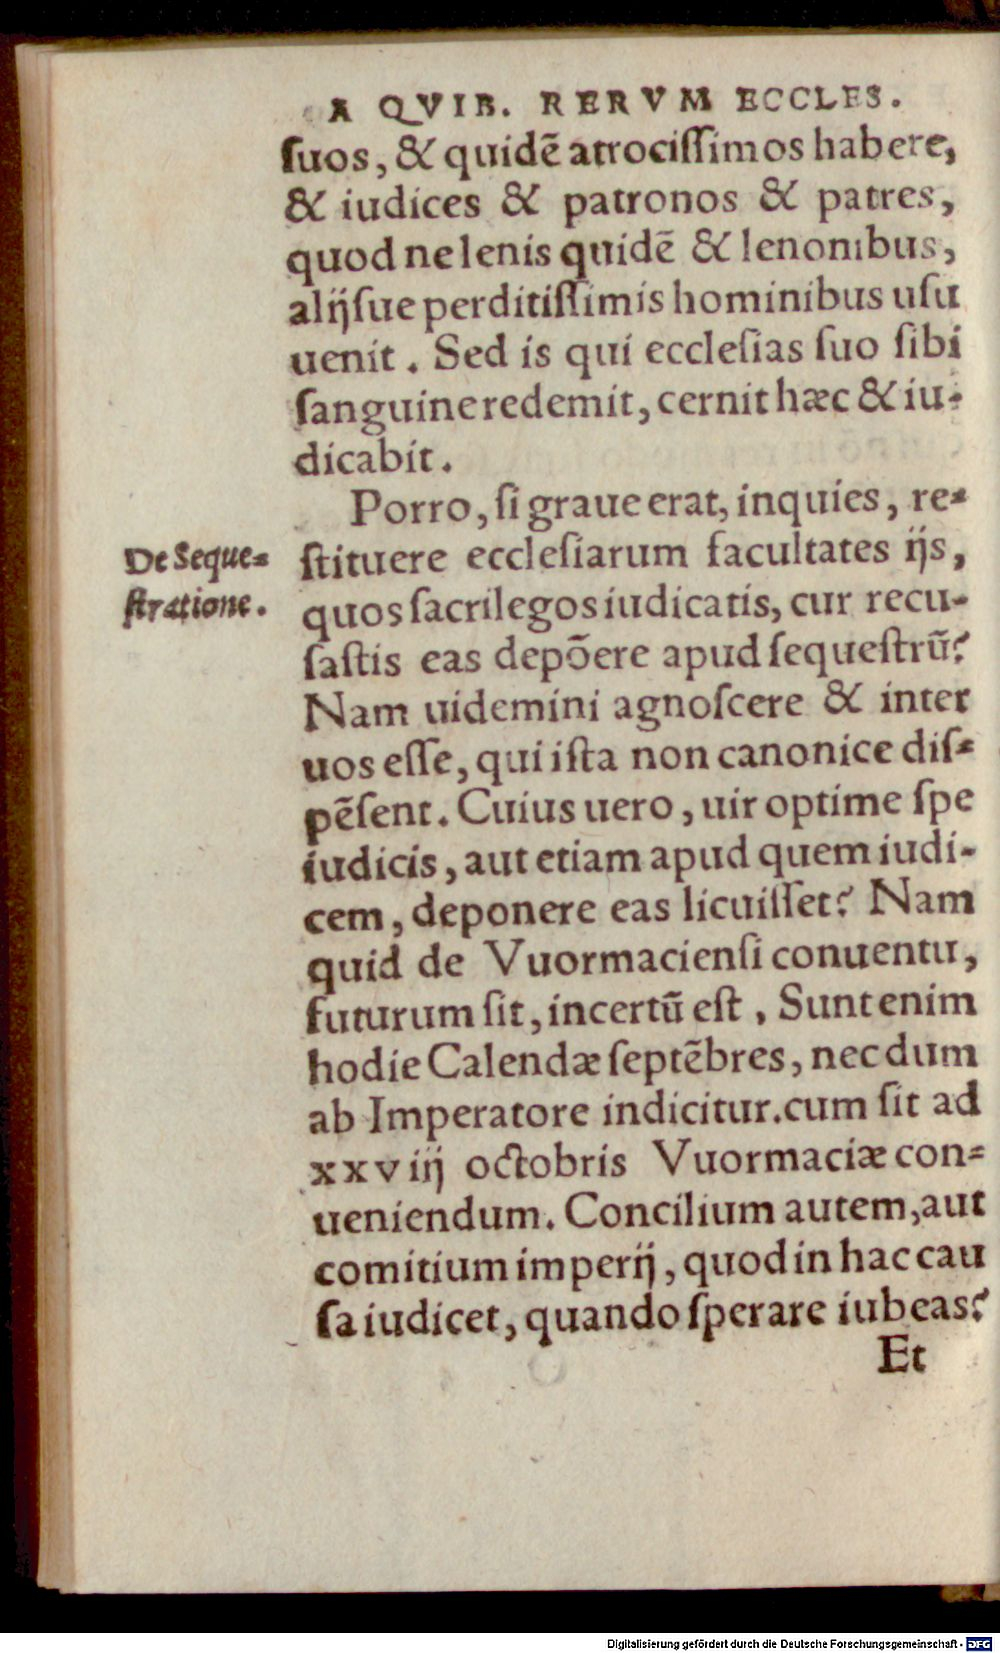 A QVIB. RERVM ECCLES.
ſuos, & quidē atrociſſimos habere,
& iudices & patronos & patres,
quod ne lenis quidē & lenonibus,
alijſue perditiſſimis hominibus uſu
uenit. Sed is qui eccleſias ſuo ſibi
ſanguine redemit, cernit hæc & iu-
dicabit.
Porro, ſi graue erat, inquies, re-
De Seque-
ſtratione.
ſtituere eccleſiarum facultates ijs,
quos ſacrilegos iudicatis, cur recu-
ſaſtis eas depōere apud ſequeſtrū?
Nam uidemini agnoſcere & inter
uos eſſe, qui iſta non canonice diſ-
pēſent. Cuius uero, uir optime ſpe
iudicis, aut etiam apud quem iudi-
cem, deponere eas licuiſſet? Nam
quid de Vuormacienſi conuentu,
futurum ſit, incertū eſt, Sunt enim
hodie Calendæ ſeptēbres, nec dum
ab Imperatore indicitur. cum ſit ad
xxviij octobris Vuormaciæ con-
ueniendum. Concilium autem, aut
comitium imperij, quod in hac cau
ſa iudicet, quando ſperare iubeas?
Et
Digitalisierung gefördert durch die Deutsche Forschungsgemeinschaft - DFG